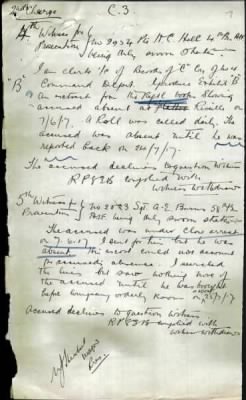 2nd Charge
C.3
4th Witness for
Prosecution
No 2934 Pte H.C. Hall 4th Bn AIF
being duly sworn states
I am clerk i/c of Records of "C" Coy of No 4
Command Depot. I produce Exhibit "B"
"B"
An extract from the Roll Book showing
accused absent Reveille
7/6/17. A Roll was called daily. The
accused was absent until he was
reported back on 25/7/17.
The accused declines to question Witness
R.P. 83B complied with
Witness withdraws
5th Witness for
Prosecution
No 2023 Sgt. A.E. Burns 58th Bn
AIF being duly sworn states
The accused was under close arrest
on 7.6.17. I sent for him but he was
absent. The escort could not account
for accused's absence. I searched
the lines but saw nothing more of
the accused until he was brought
before Company orderly Room on 25/7/17
Accused declines to question Witness
R.P. 83B complied with
Witness withdraws
Major
Pres.